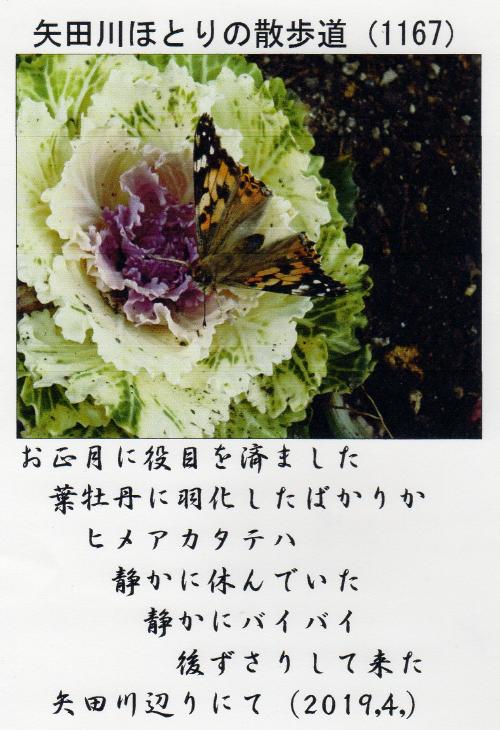 矢田川ほとりの散歩道（1167）
お正月に役目を済ました
葉牡丹に羽化したばかりか
ヒメアカタテハ
静かに休んでいた
静かにバイバイ
後ずさりして来た
矢田川辺りにて（2019,4,）